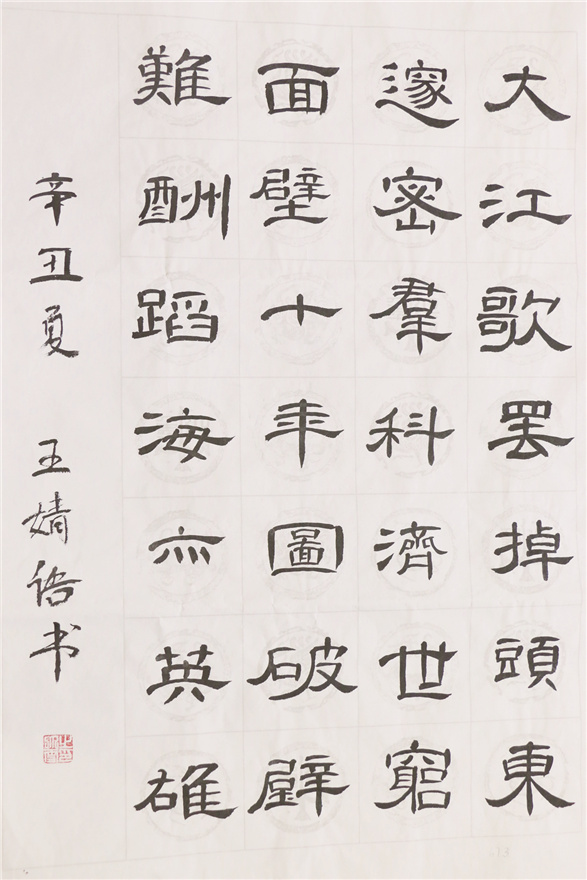 大江歌罢掉頭東
邃密羣科濟世窮
面壁十年圖破壁
難酬蹈海亦英雄
辛丑夏 王婧语书